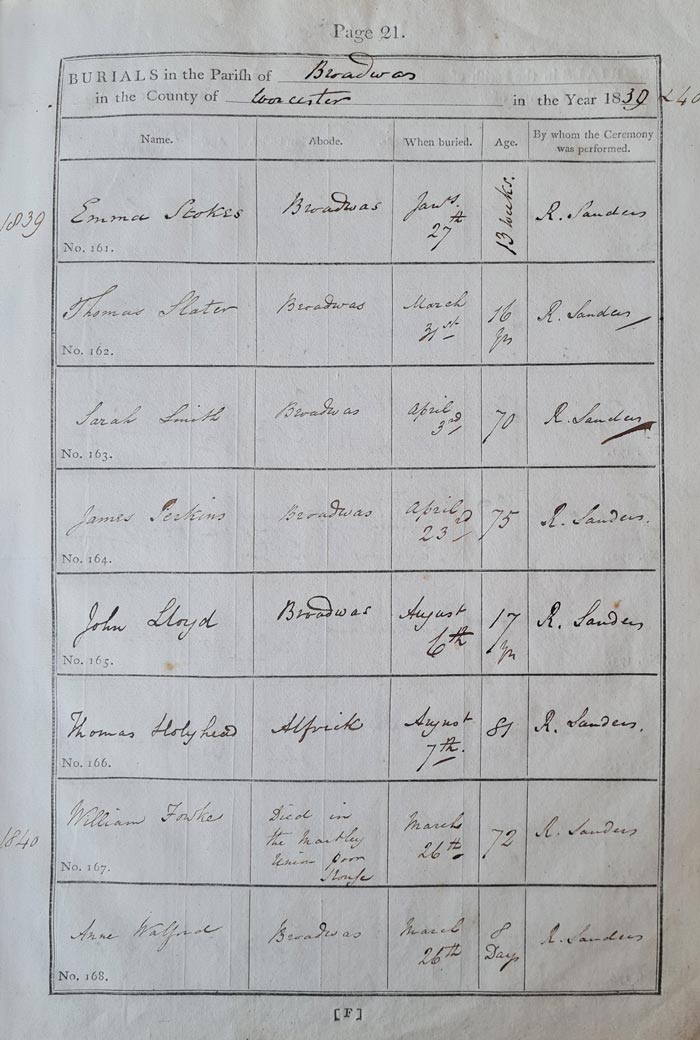 Page 21.
BURIALS in the Parish of Broadwas
in the County of Worcester in the Year 1839 & 40
Name. Abode. When buried. Age. By whom the Ceremony was performed.
1839
Emma Stokes Broadwas Jany. 27th 13 weeks. R. Sanders
No. 161.
Thomas Slater Broadwas March 31st 16 yrs R. Sanders
No. 162.
Sarah Smith Broadwas April 3rd 70 R. Sanders
No. 163.
James Perkins Broadwas April 23rd 75 R. Sanders.
No. 164.
John Lloyd Broadwas August 6th 17 yrs R. Sanders
No. 165.
Thomas Holyhead Alfrick August 7th. 81 R. Sanders.
No. 166.
1840
William Fowke Died in the Martley Union Poor House March 26th 72 R. Sanders
No. 167.
Anne Walford Broadwas March 26th 8 Days R. Sanders
No. 168.
[F]